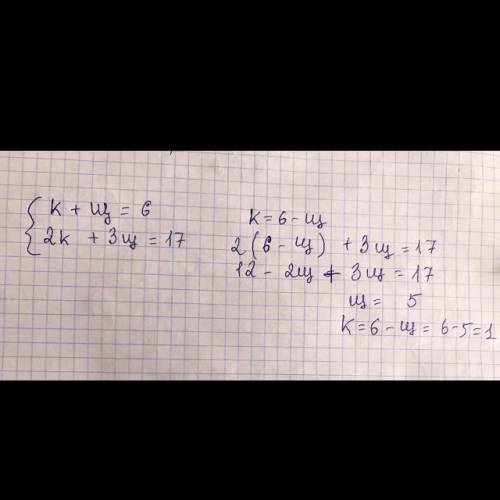 к + щ = 6
2к + 3щ = 17
к = 6 - щ
2(6 - щ) + 3щ = 17
12 - 2щ + 3щ = 17
щ = 5
к = 6 - щ = 6 - 5 = 1